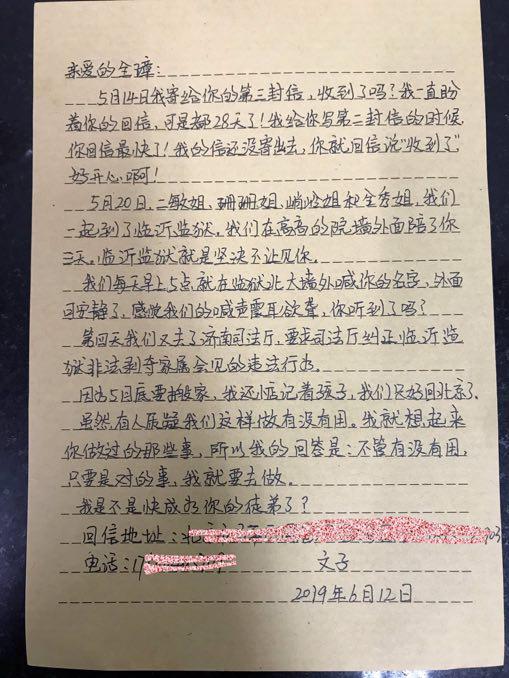 亲爱的全璋：
5月14日我寄给你的第三封信，收到了吗？我一直盼
着你的回信，可是都28天了！我给你写第二封信的时候，
你回信最快了！我的信还没寄出去，你就回信说“收到了”
好开心啊！
5月20日，二敏姐、珊珊姐、峭岭姐和全秀姐，我们
一起到了临沂监狱。我们在高高的院墙外面陪了你
三天。临沂监狱就是坚决不让见你。
我们每天早上5点，就在监狱北大墙外喊你的名字，外面
可安静了，感觉我们的喊声震耳欲聋，你听到了吗？
第四天我们又去了济南司法厅，要求司法厅纠正临沂监
狱非法剥夺家属会见的违法行为。
因为5月底要搬家，我还惦记着孩子，我们只好回北京了。
虽然有人质疑我们这样做有没有用。我就想起来
你做过的那些事，所以我的回答是：不管有没有用，
只要是对的事，我就要去做。
我是不是快成为你的徒弟了？
回信地址：
电话：17
文子
2019年6月12日